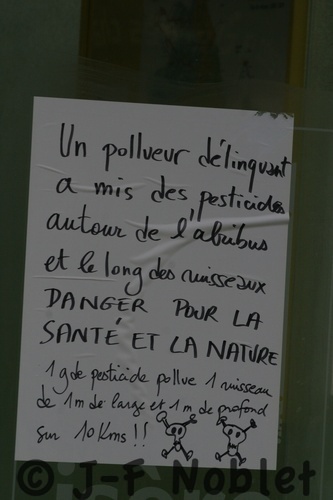 Un pollueur délinquant
a mis des pesticides
autour de l'abribus
et le long des ruisseaux
DANGER POUR LA
SANTÉ ET LA NATURE
1g de pesticide pollue 1 ruisseau
de 1m de large et 1m de profond
sur 10 Kms !!
© J-F Noblet